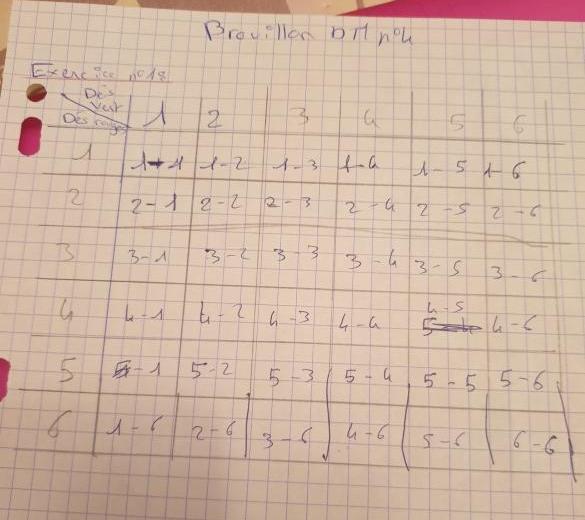 Brouillon DM n°4
Exercice n°18
Dés vert
Dés rouges
1 2 3 4 5 6
1 1-1 1-2 1-3 1-4 1-5 1-6
2 2-1 2-2 2-3 2-4 2-5 2-6
3 3-1 3-2 3-3 3-4 3-5 3-6
4 4-1 4-2 4-3 4-4 4-5 4-6
5 5-1 5-2 5-3 5-4 5-5 5-6
6 1-6 2-6 3-6 4-6 5-6 6-6